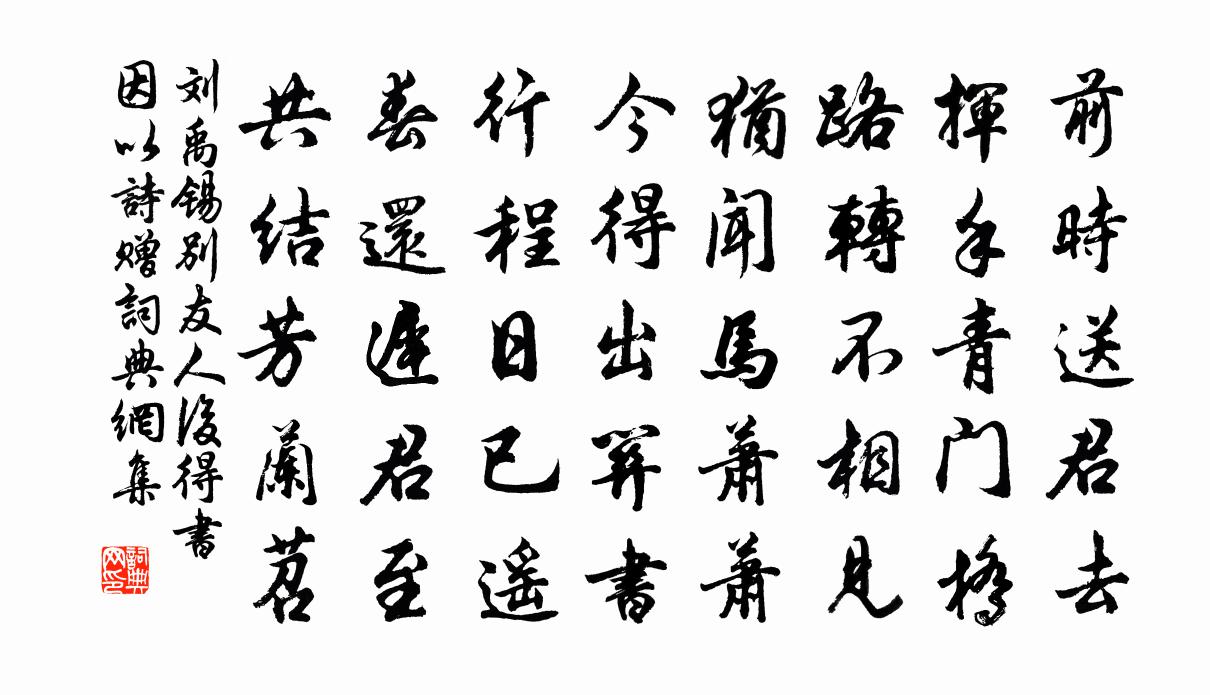 前時送君去
揮手青门橋
路轉不相見
猶聞馬蕭蕭
今得出關書
行程日已遥
春還遲君至
共结芳蘭苕
刘禹锡别友人後得書
因以詩赠詞典網集
詞典网印